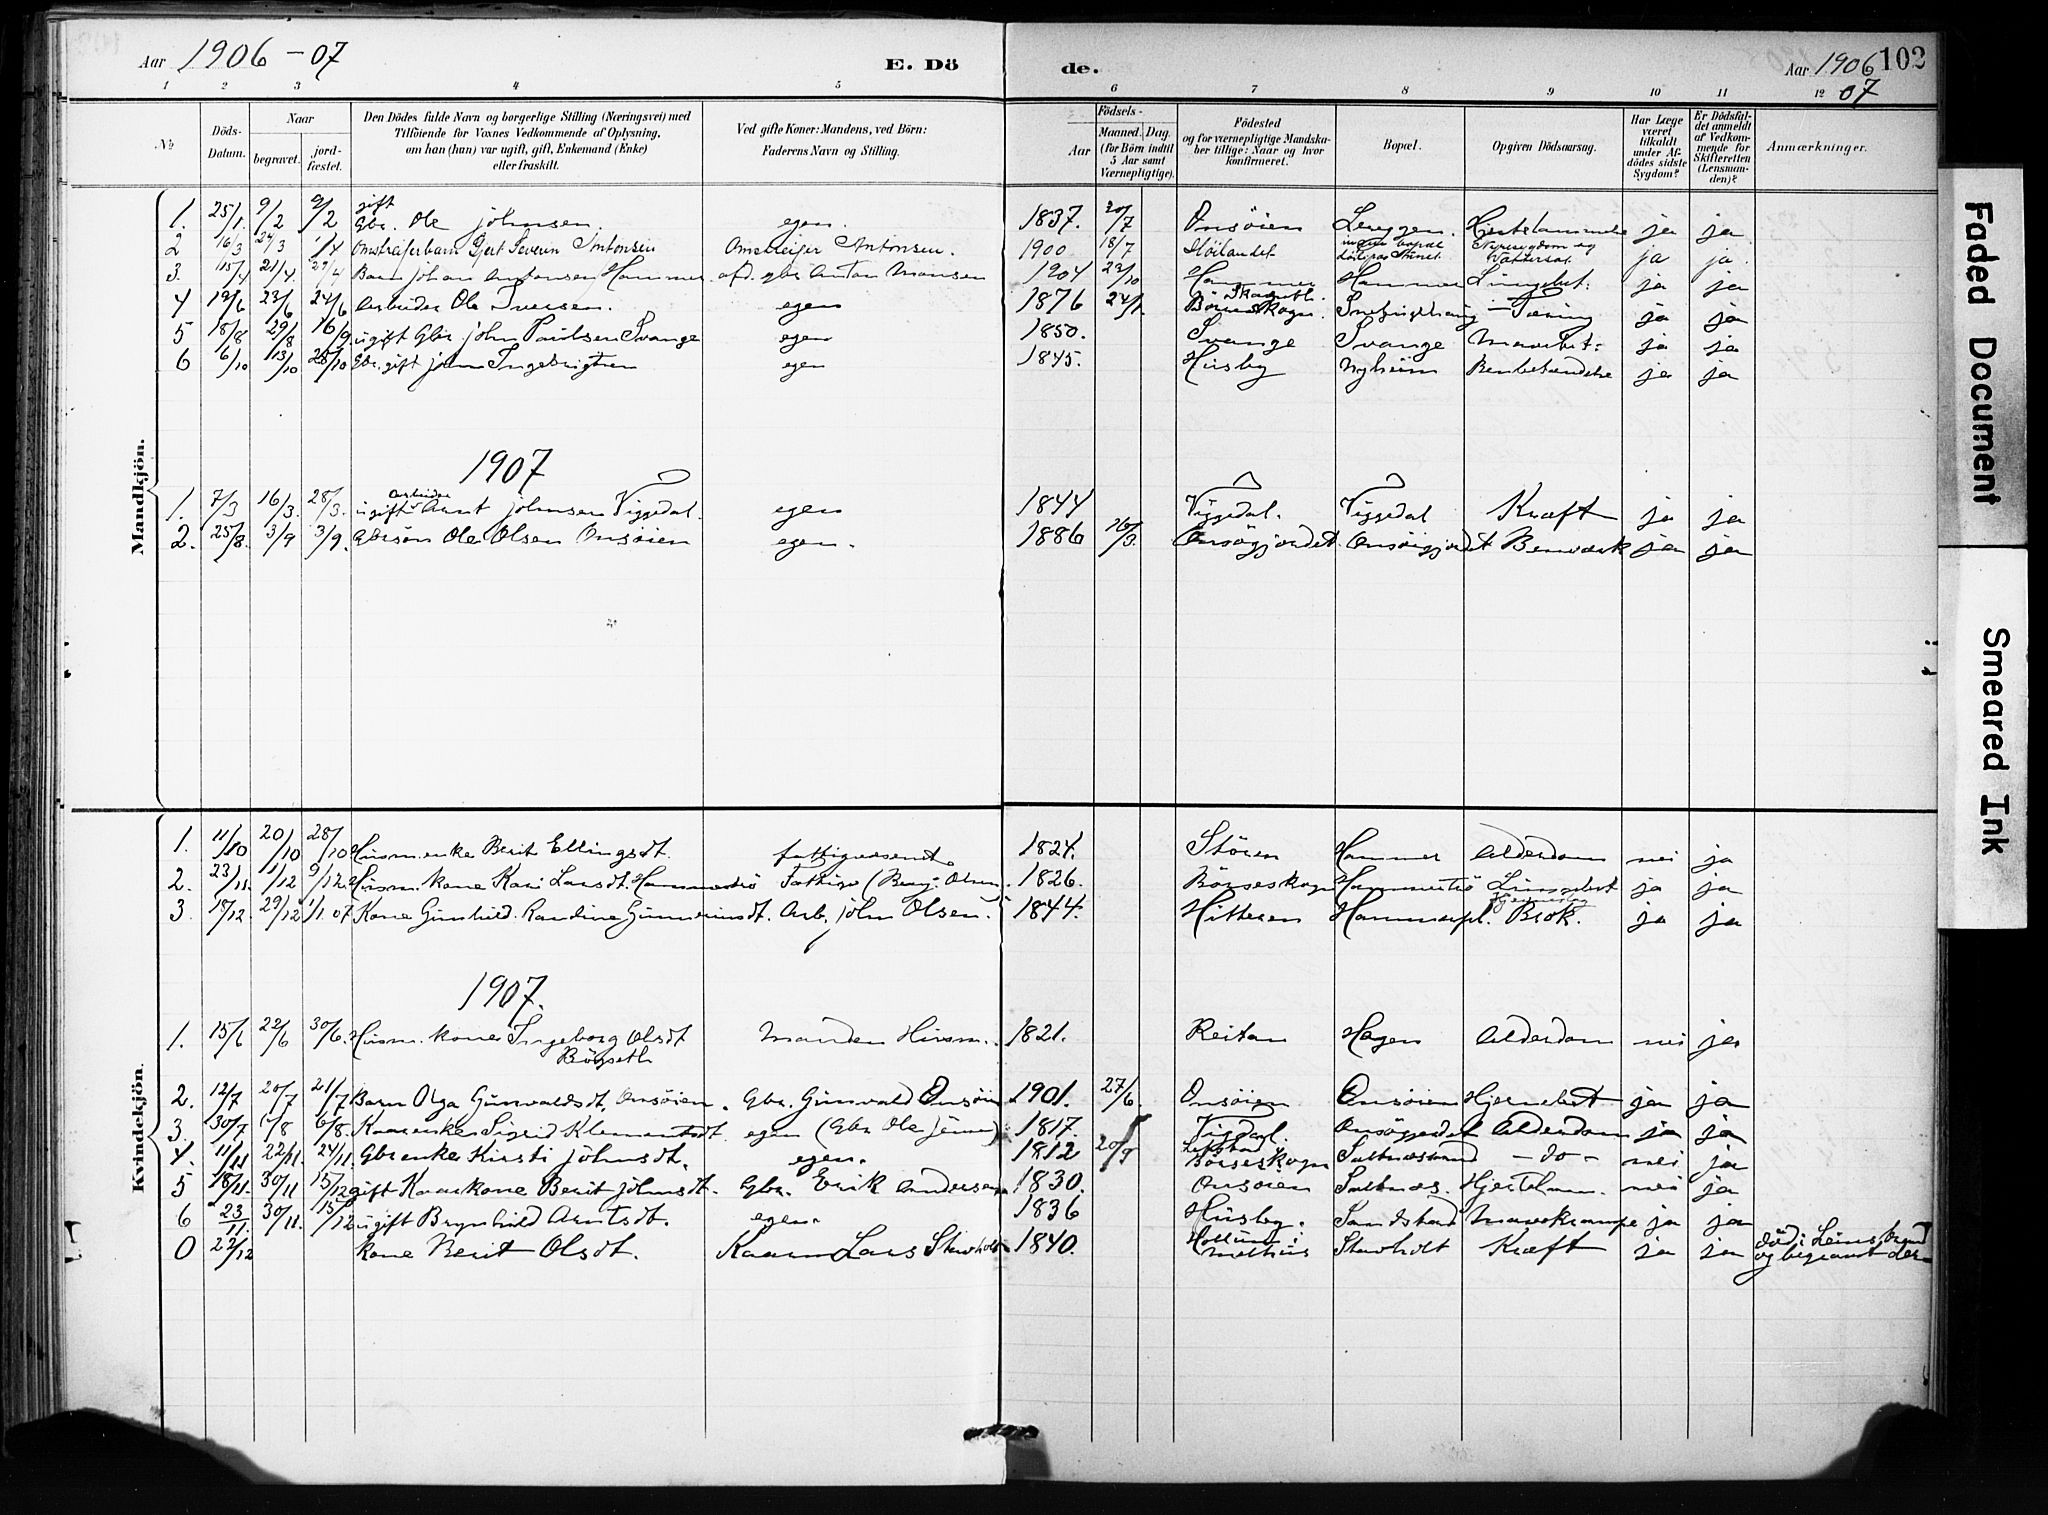 Aar 1906-07
E. Dö
de.
Aar 1906 07
102
1 2 3 4 5 6 7 8 9 10 11 12
No
Döds-Datum.
Naar
begravet.
jord-fæstet.
Den Dödes fulde Navn og borgerlige Stilling (Næringsvei) med
Tilföiende for Voxnes Vedkommende af Oplysning,
om han (hun) var ugift, gift, Enkemand (Enke)
eller fraskilt.
Ved gifte Koner: Mandens, ved Börn:
Faderens Navn og Stilling.
Födsels-
Aar
Maaned. Dag.
(for Börn indtil
5 Aar samt
Værnepligtige).
Födested
og for værnepligtige Mandska-
ber tillige: Naar og hvor
konfirmeret.
Bopæl.
Opgiven Dödsaarsag.
Har Læge
været
tilkaldt
under Af-
dödes sidste
Sygdom?
Er Dödsfal-
det anmeldt
af Vedkom-
mende for
Skifteretten
(Lensman-
den)?
Anmærkninger.
Mandkjön.
1. 25/1. 9/2 9/2 gift Gbr. Ole Johnsen egen. 1837. 20/7 Onsöien Hjertelammelse ja ja
2 16/3 24/3 Gjert Severin Antonsen Antonsen. 1900 18/7 Höilandet ja ja.
3. 15/4 21/4. Barn Johan Antonsen Hammer. gbr Anton Hansen 1904 23/10 Hammer Hammer Lungebet. ja ja
4 19/6 23/6 24/6 Arbeider Ole Iversen. egen 1876 24/1. Börseskogn. Tæring ja ja
5 18/8 29/8 16/9 ugift Gbr John Paulsen Svange egen 1850. Svange Svange Mavebet: ja ja
6 6/10 13/10 28/10 Gbr. gift John Ingebrigtsen egen 1845. Husby Nyheim Benbetændelse ja ja
1907
1. 7/3 16/3. 28/3. ugift arbeider Arnt Johnsen Viggedal. egen 1844 Viggedal. Viggedal Kræft ja ja
2. 25/8. 3/9 3/9. Gbrsön Ole Olsen Onsöien egen. 1886 Onsögjerdet. Onsöigjerdet ja ja
Kvindekjön.
1. 11/10 20/10 28/10 Husm.enke Berit Ellingsdt. fattigvæsenet. 1824. Stören Hammer Alderdom nei ja
2. 23/11. 11/12 9/12. Husm. kone Kari Larsdt. Olsen 1826. Börseskogn ja ja
3. 18/12. 29/12 1/1. 07 Kone Gunhild Randine Arb. John Olsen. 1844. Hitteren Hammerpl. Brok. ja ja
1907.
1. 15/6 22/6 30/6. Husm. kone Ingeborg Olsdt Börseth Manden Husm. 1821. Reitan Hagen Alderdom nei ja
2. 12/7 20/7 21/7 Barn Olga Gunvaldsdt. Onsöien. Gbr. Gunvald Onsöien 1901. 27/6. Onsöien Onsöien Hjernebet ja ja
3. 30/7 6/8. Kaarenke Sigrid Klementsdt. egen (Gbr Ole Jensen) 1817. Viggdal. Onsögjerdet Alderdom ja ja
4. 11/11 22/11. 24/11. Gbrenke Kirsti Johnsdt. egen. 1812 Börseskogn Saltnessand - do - nei ja
5 18/11. 30/11 15/12 gift Kaarkone Berit Johnsdt. Gbr. Erik Andersen 1830. Onsöien Saltnes. Hjertelam. nei ja
6 23/11. 30/11. 15/12 ugift Brynhild Arntsdt. egen. 1836 Husby. Sandstad Mavekrampe ja ja
0 22/12 kone Berit Olsdt. Kaarm Lars Stavholt 1840. Hollum i Melhus Stavholt Kræft ja ja död i Leinstrand og begravet der
Faded Document
Smeared Ink